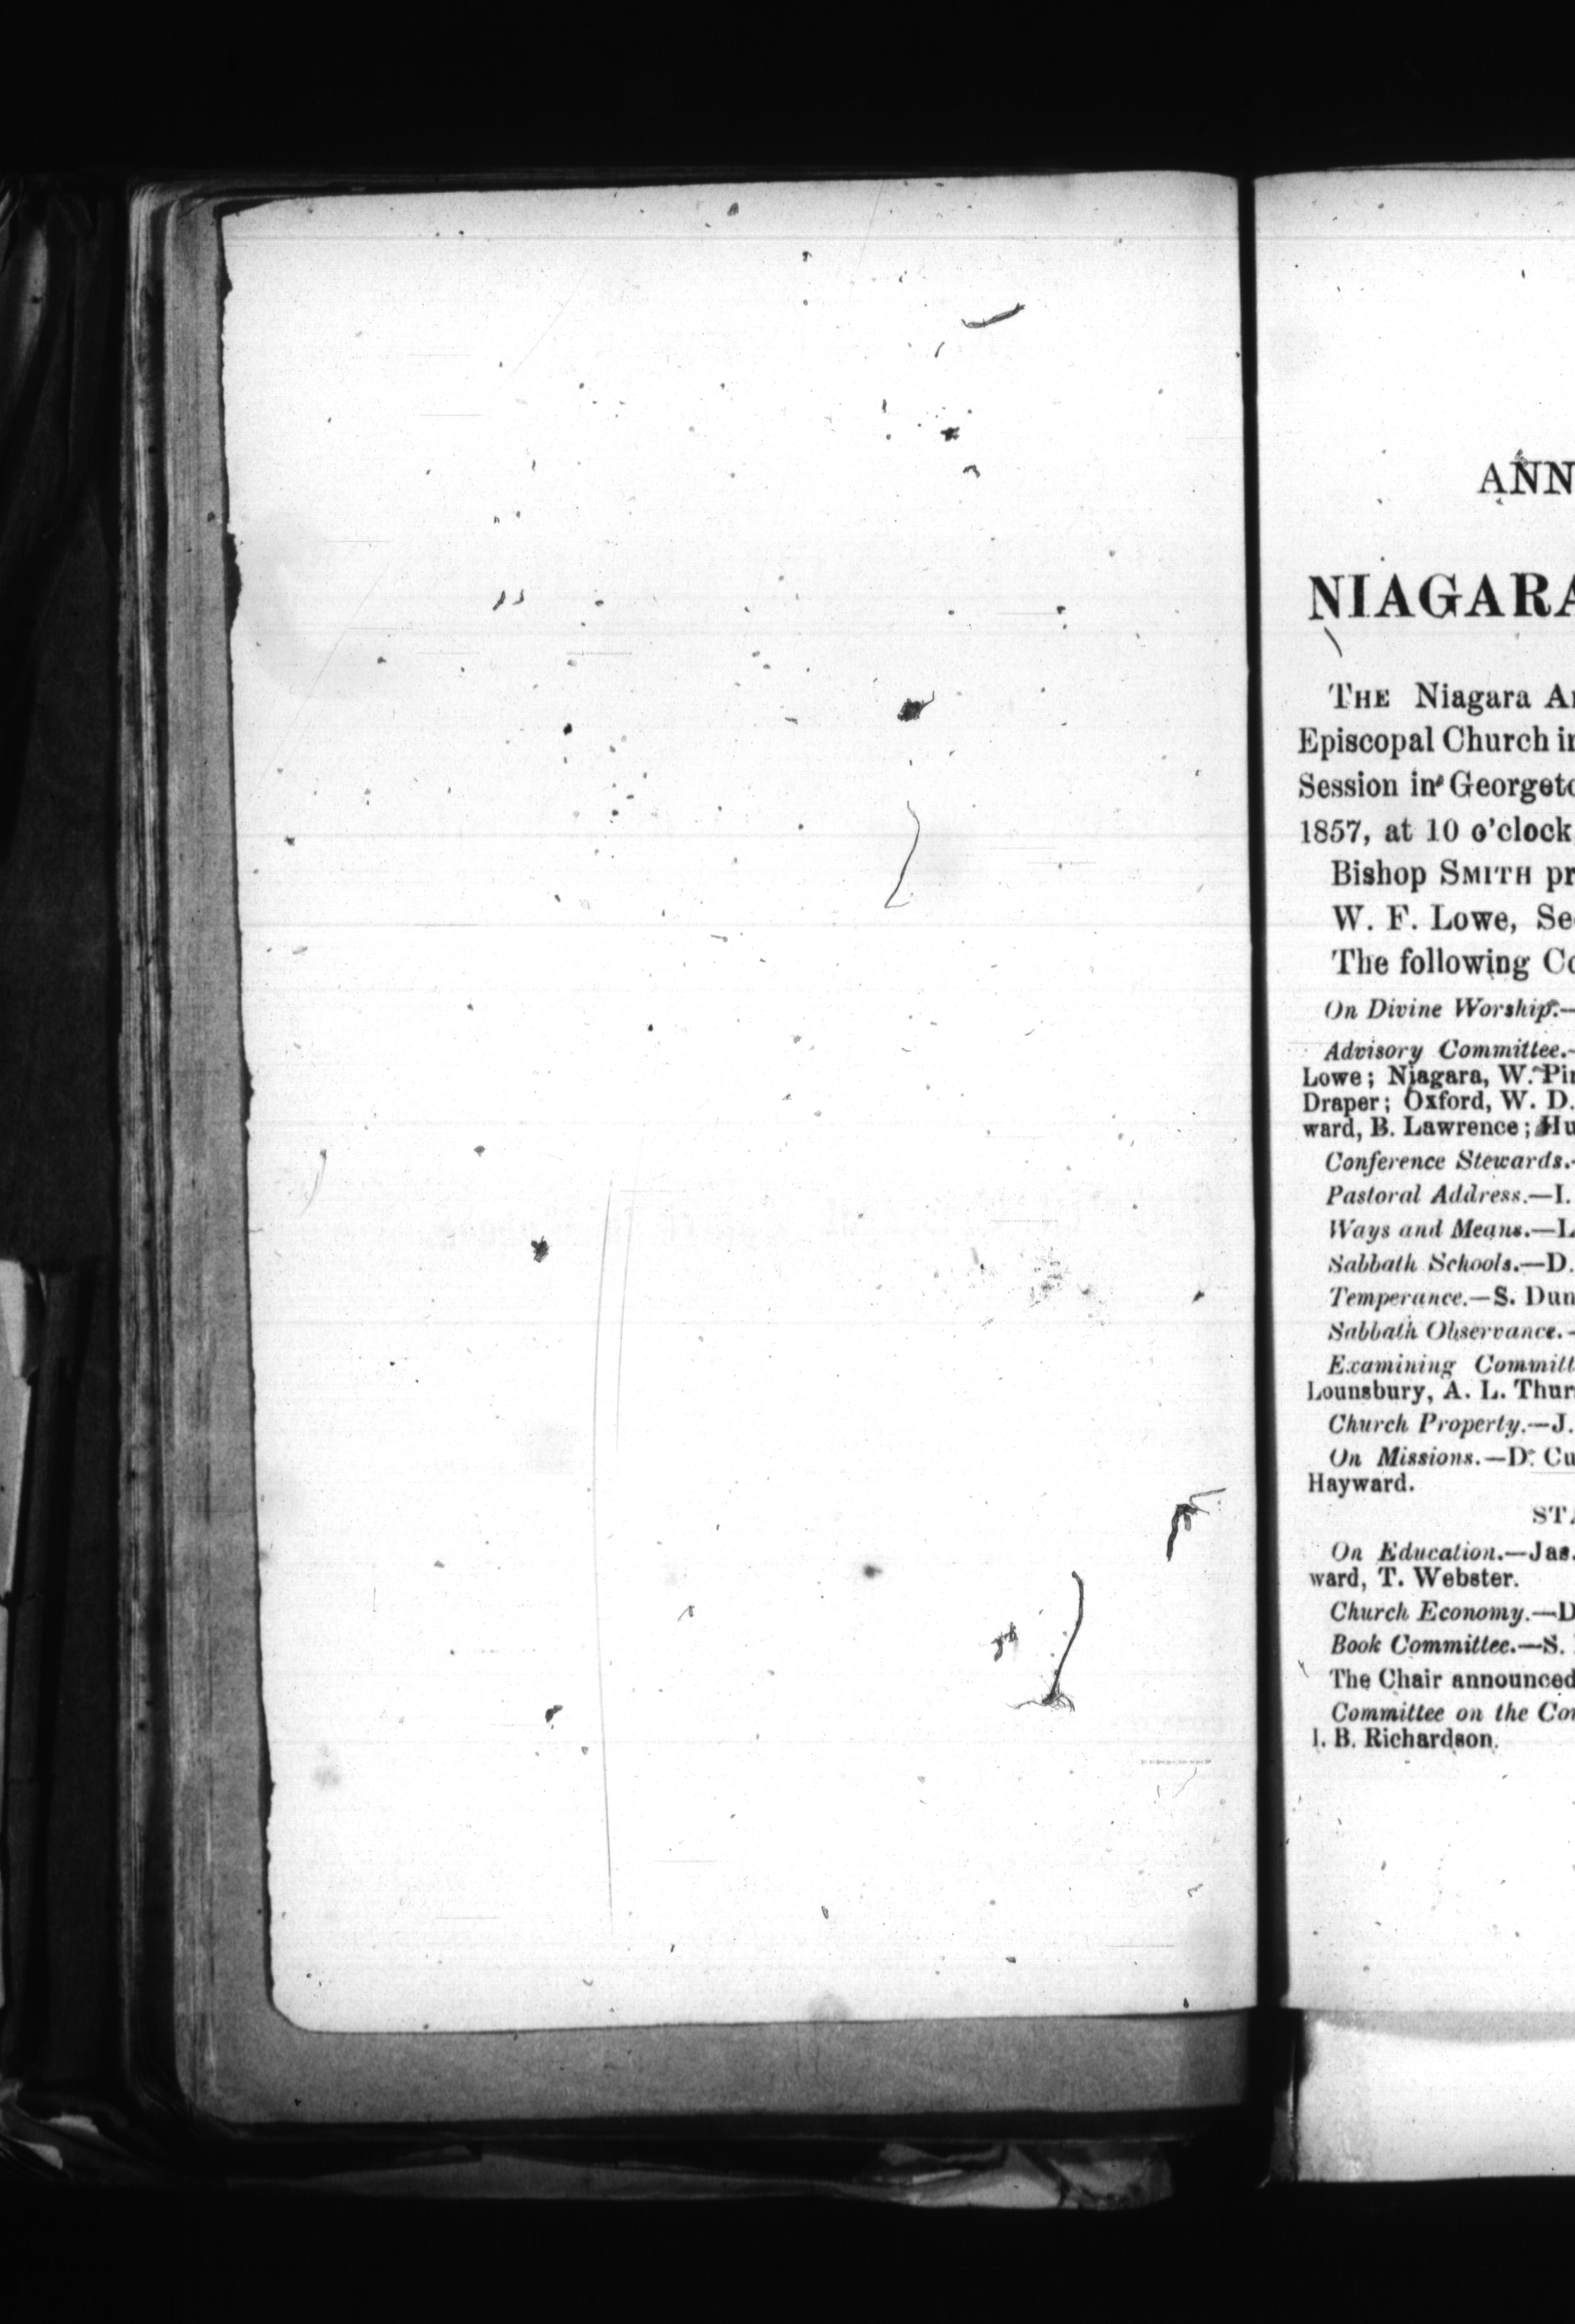 ANN
NIAGARA
THE Niagara An
Episcopal Church in
Session in Georgeto
1857, at 10 o'clock,
Bishop SMITH pr
W. F. Lowe, Sec
The following Co
On Divine Worship.—
Advisory Committee.—
Lowe; Niagara, W. Pir
Draper; Oxford, W. D.
ward, B. Lawrence; Hu
Conference Stewards.—
Pastoral Address.—I.
Ways and Means.—L
Sabbath Schools.—D.
Temperance.—S. Dun
Sabbath Observance.—
Examining Committ
Lounsbury, A. L. Thur
Church Property.—J.
On Missions.—D. Cu
Hayward.
STA
On Education.—Jas.
ward, T. Webster.
Church Economy.—D
Book Committee.—S.
The Chair announced
Committee on the Con
I. B. Richardson.